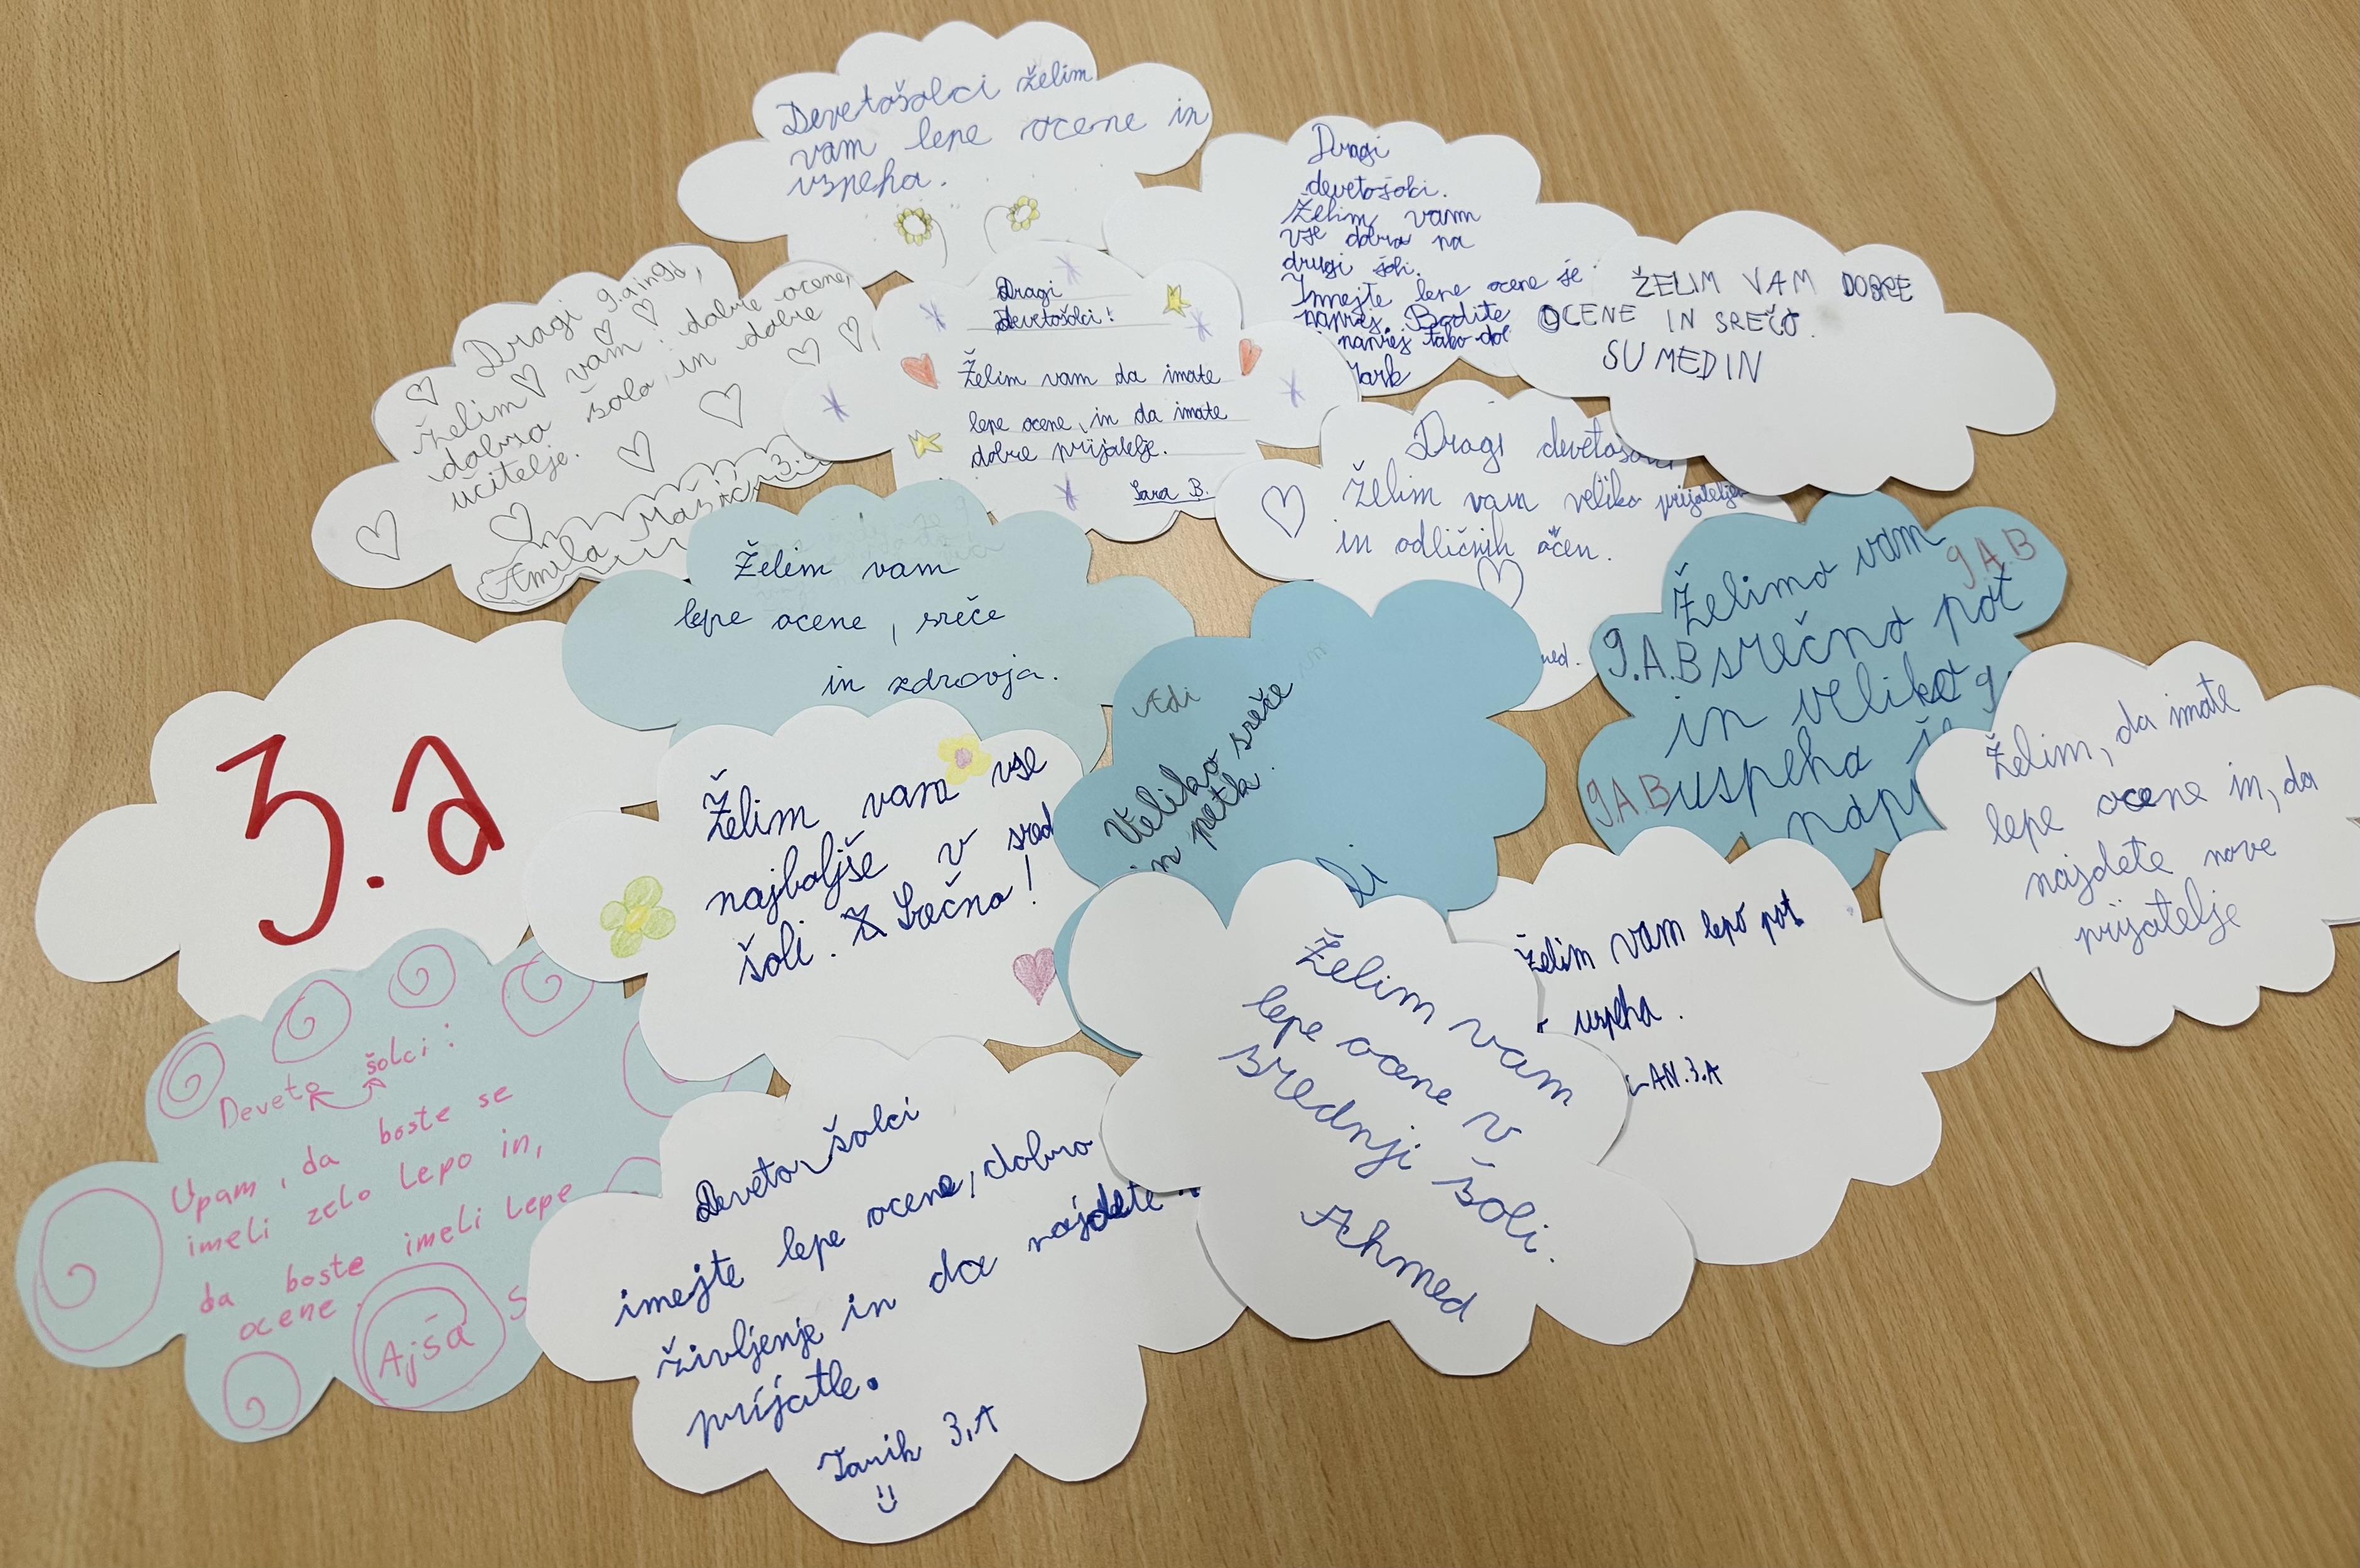 Devetošolci želim
vam lepe ocene in
uspeha.
Dragi
devetošolci.
Želim vam
vse dobro na
drugi šoli.
Imejte lepe ocene še
naprej. Bodite
naprej tako
ŽELIM VAM DOBRE
OCENE IN SREČO.
SUMEDIN
Dragi 9.a in 9.b,
želim vam dobre ocene,
dobro šolo, in dobre
učitelje.
Amila
Dragi
Devetošolci!
Želim vam da imate
lepe ocene, in da imate
dobre prijatelje.
Sara B.
Dragi
Želim vam veliko
in odličnih ocen.
Želim vam
lepe ocene, sreče
in zdravja.
Želimo vam
9.A.B
9.A.B srečno pot
in veliko
9.A.B uspeha
3.a
Želim vam vse
najboljše v
šoli. Srečno!
Adi
Veliko sreče
in petk.
Želim, da imate
lepe ocene in, da
najdete nove
prijatelje
Želim vam lepo pot
uspeha.
AN.3.A
Želim vam
lepe ocene v
srednji šoli.
Ahmed
Deveto šolci:
Upam, da boste se
imeli zelo lepo in,
da boste imeli lepe
ocene.
Ajša
Deveto šolci
imejte lepe ocene, dobro
življenje in da najdete
prijatle.
Tarik 3.A